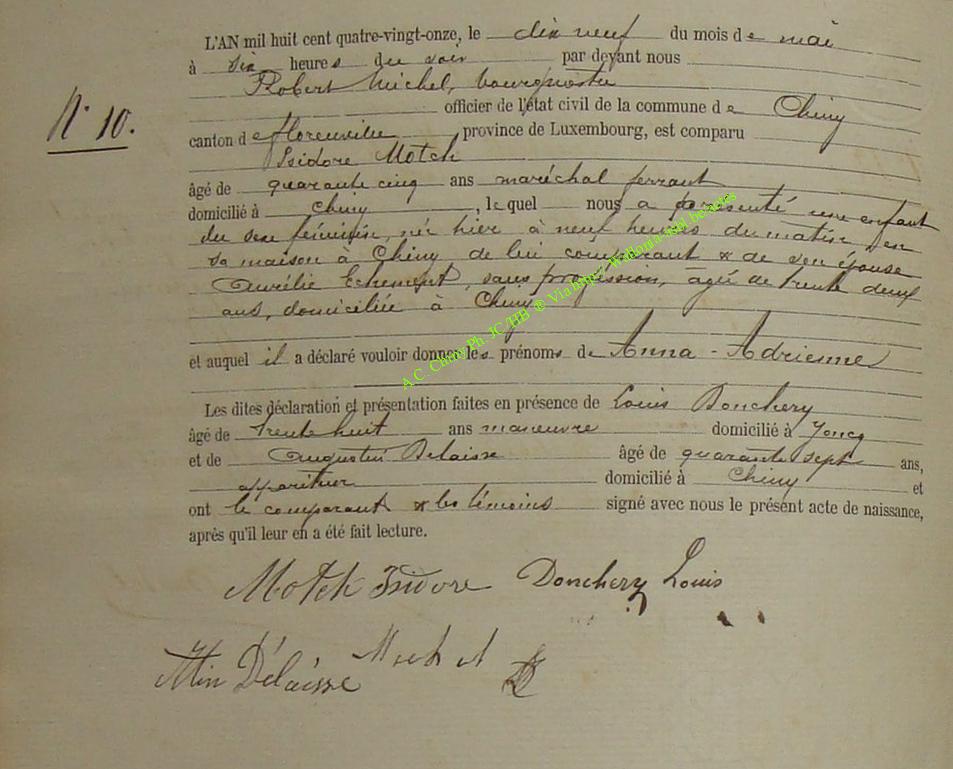 L'AN mil huit cent quatre-vingt-onze, le dix neuf du mois de mai
à six heures du soir par devant nous
Robert Michel, bourgmestre
officier de l'état civil de la commune de Chiny
N° 10.
canton de florenville, province de Luxembourg, est comparu
Isidore Motch
âgé de quarante cinq ans maréchal ferrant
domicilié à Chiny, lequel nous a présenté une enfant
du sexe féminin, née hier à neuf heures du matin, en
sa maison à Chiny de lui comparant & de son épouse
Aurélie Echement, sans profession, agée de trente deux
ans, domiciliée à Chiny
et auquel il a déclaré vouloir donner les prénoms de Anna-Adrienne
Les dites déclaration et présentation faites en présence de Louis Donchery
âgé de trente huit ans manœuvre domicilié à Joncq
et de Augustin Delaisse âgé de quarante sept ans,
appariteur domicilié à Chiny et
ont le comparant & les témoins signé avec nous le présent acte de naissance,
après qu'il leur en a été fait lecture.
Motch Isidore Donchery Louis
Délaisse
A.C. Chiny Ph. JC/HB ®